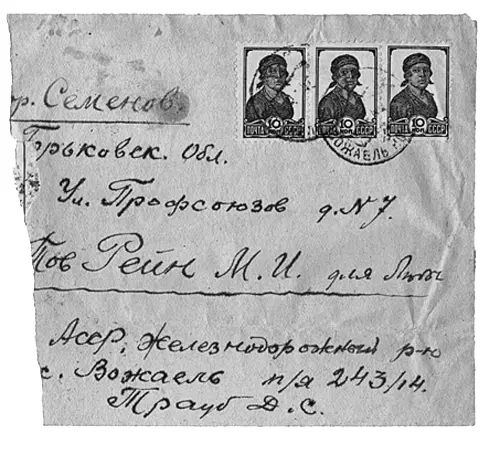 10 ПОЧТА СССР 10 ПОЧТА СССР 10 ПОЧТА СССР
ВОЖАЕЛЬ
гор. Семенов.
Горьковск. Обл.
Ул. Профсоюзов д. N 7.
Тов Рейн М. И. для Литы
Асср, Железнодорожный р-н
с. Вожаель п/я 243/14.
Трауб Д. С.